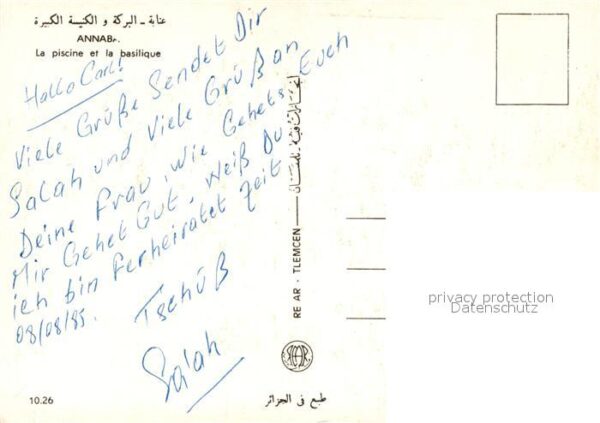 عنابة - البركة و الكنيسة الكبيرة
ANNABA.
La piscine et la basilique
Hallo Carl!
Viele Grüße Sendet Dir
Salah und Viele Grüß an
Deine Frau, Wie Gehets Euch
Mir Gehet Gut. Weiß Du
ich bin Ferheiratet Zeit
08/08/85.
Tschüß
Salah
RE AR - TLEMCEN
10.26
طبع في الجزائر
privacy protection
Datenschutz